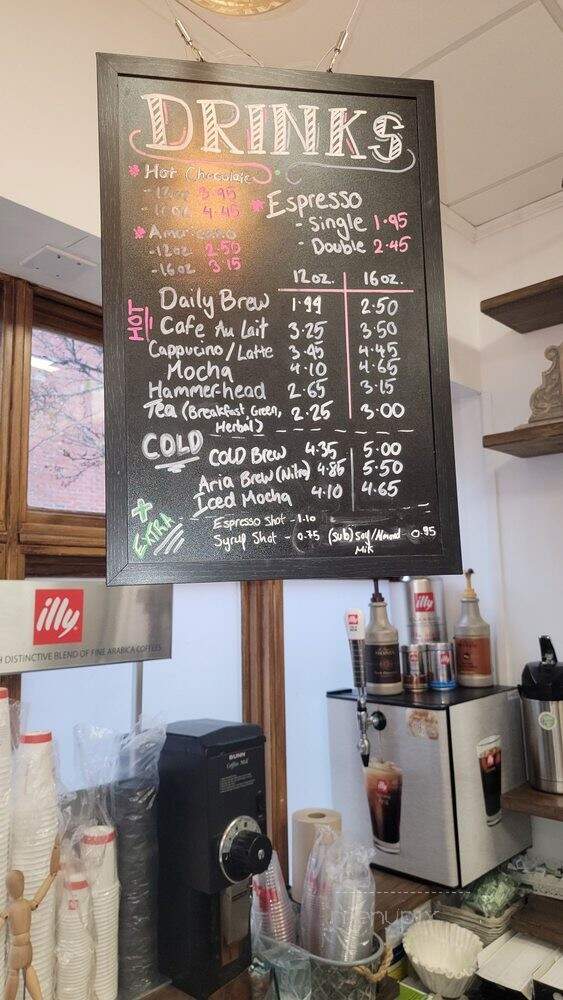 DRINKS
* Hot Chocolate
- 12oz 3.95
- 16oz 4.45
* Americano
- 12oz 2.50
- 16oz 3.15
* Espresso
- Single 1.95
- Double 2.45
12 oz. 16 oz.
HOT
Daily Brew 1.99 2.50
Cafe Au Lait 3.25 3.50
Cappucino/Latte 3.95 4.45
Mocha 4.10 4.65
Hammer-head 2.65 3.15
Tea (Breakfast, Green, Herbal) 2.25 3.00
COLD
COLD BREW 4.35 5.00
Aria Brew (Nitro) 4.85 5.50
Iced Mocha 4.10 4.65
+ EXTRA
Espresso Shot - 1.10
Syrup Shot - 0.75 (Sub) Soy/Almond Milk 0.95
illy
DISTINCTIVE BLEND OF FINE ARABICA COFFEES
BUNN
Coffee Mill
illy
illy
menupix